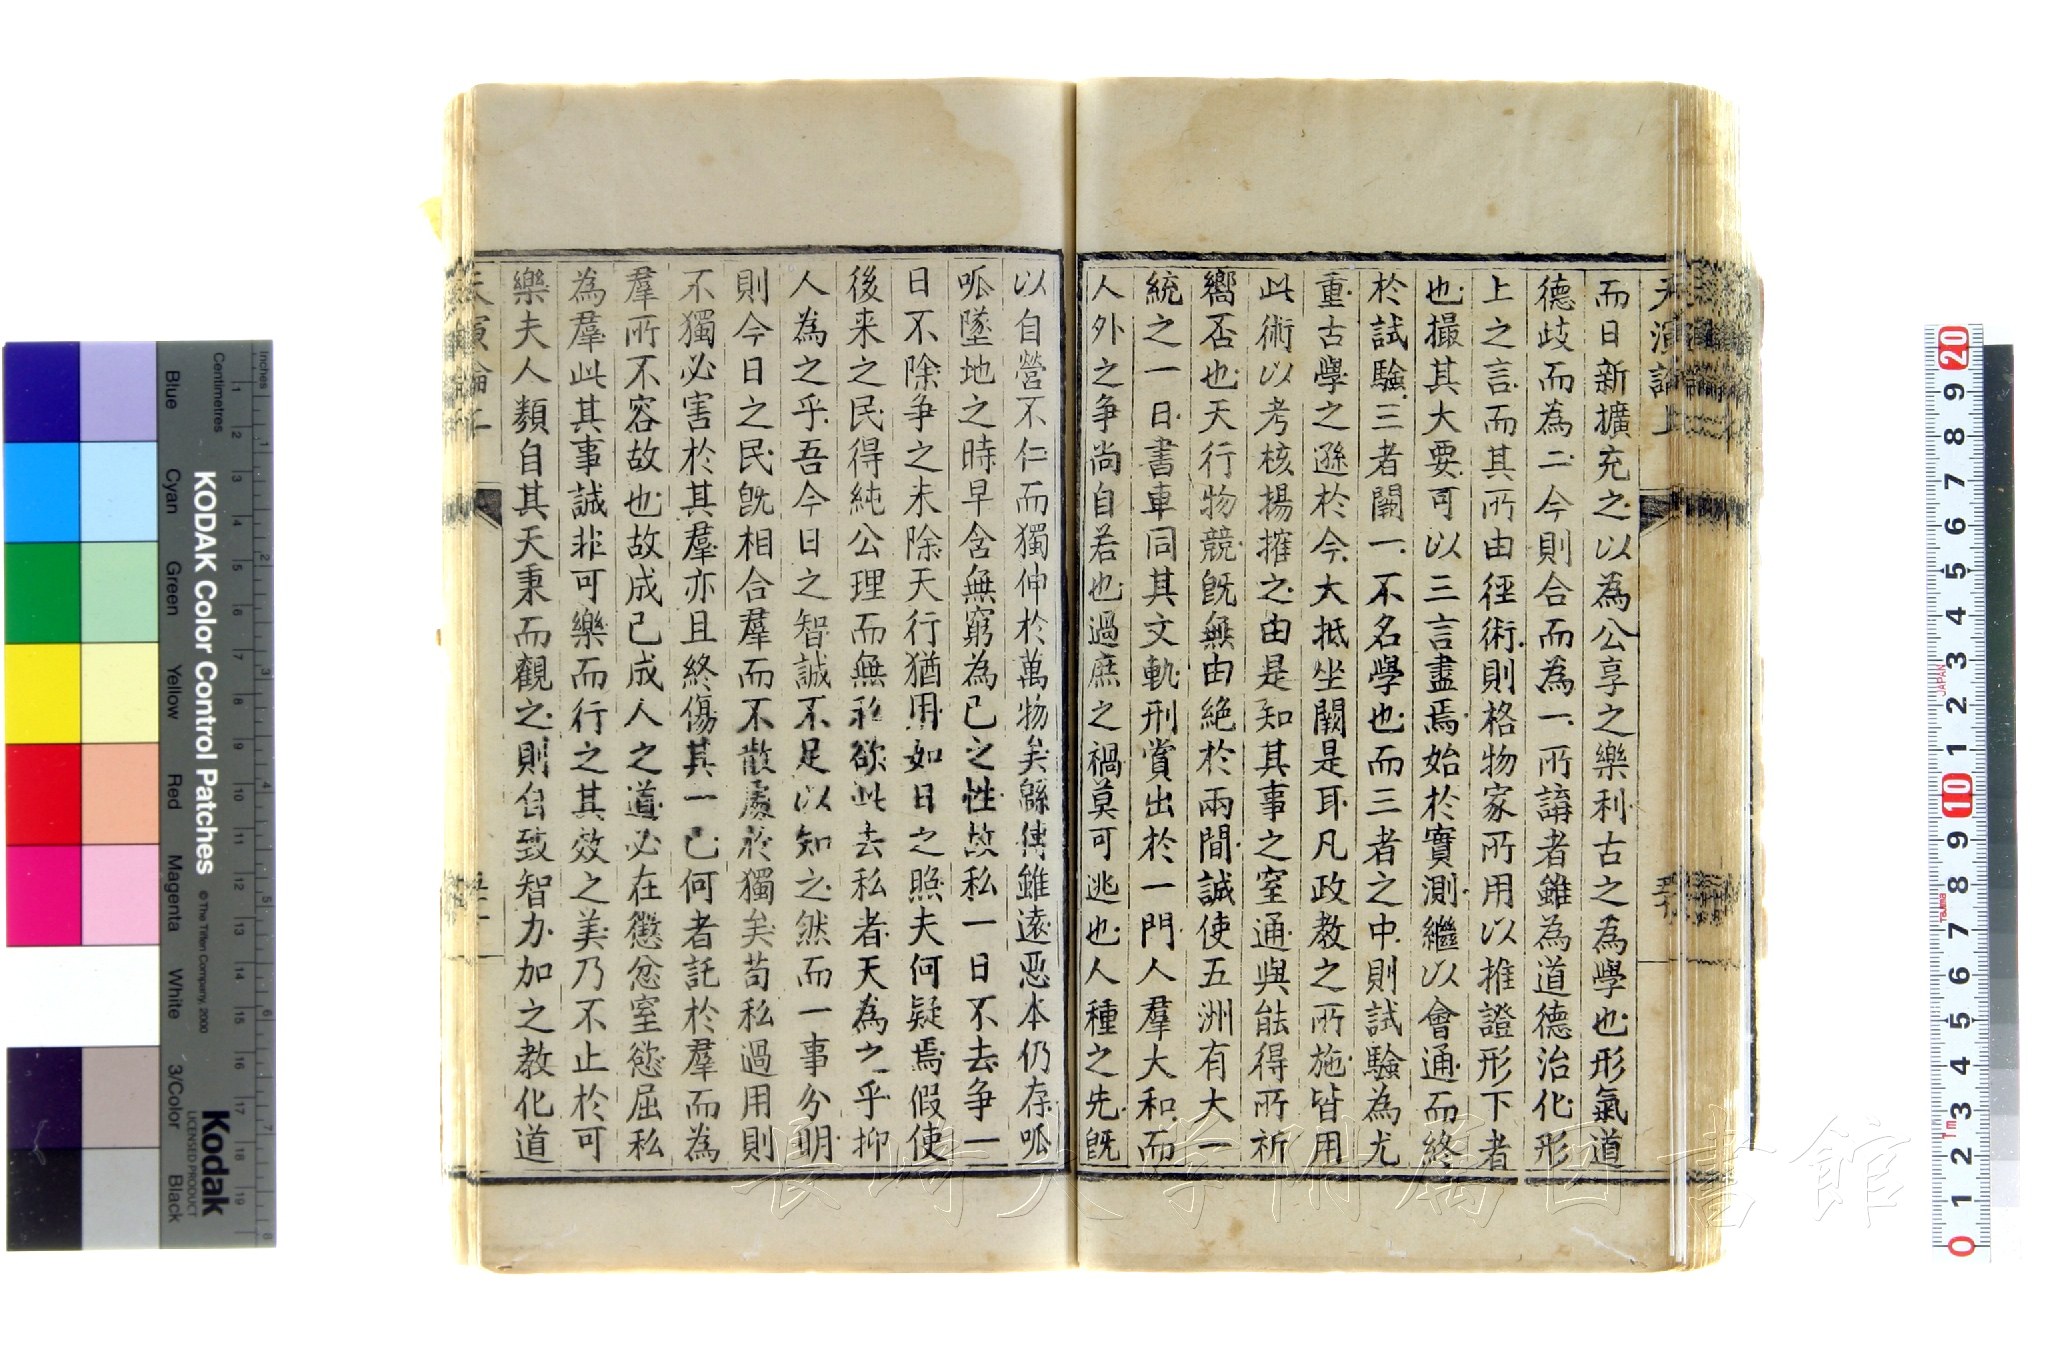 天演論上
而日新擴充之以為公享之樂利古之為學也形氣道
德歧而為二今則合而為一所講者雖為道德治化形
上之言而其所由徑術則格物家所用以推證形下者
也撮其大要可以三言盡焉始於實測繼以會通而終
於試驗三者闕一不名學也而三者之中則試驗為尤
重古學之遜於今大抵坐闕是耳凡政教之所施皆用
此術以考核揚搉之由是知其事之窒通與能得所祈
嚮否也天行物競既無由絕於兩間誠使五洲有大一
統之一日書車同其文軌刑賞出於一門人羣大和而
人外之爭尚自若也過庶之禍莫可逃也人種之先既
以自營不仁而獨伸於萬物矣緜傳雖遠惡本仍存呱
呱墜地之時早含無窮為己之性故私一日不去爭一
日不除爭之未除天行猶用如日之照夫何疑焉假使
後来之民得純公理而無私欲此去私者天為之乎抑
人為之乎吾今日之智誠不足以知之然而一事分明
則今日之民既相合羣而不散處於獨矣苟私過用則
不獨必害於其羣亦且終傷其一己何者託於羣而為
羣所不容故也故成己成人之道必在懲忿窒慾屈私
為羣此其事誠非可樂而行之其效之美乃不止於可
樂夫人類自其天秉而觀之則自致智力加之教化道
KODAK Color Control Patches
© The Tiffen Company, 2000
Kodak
LICENSED PRODUCT
Inches
Centimetres
Blue
Cyan
Green
Yellow
Red
Magenta
White
3/Color
Black
JAPAN
長崎大学附属図書館